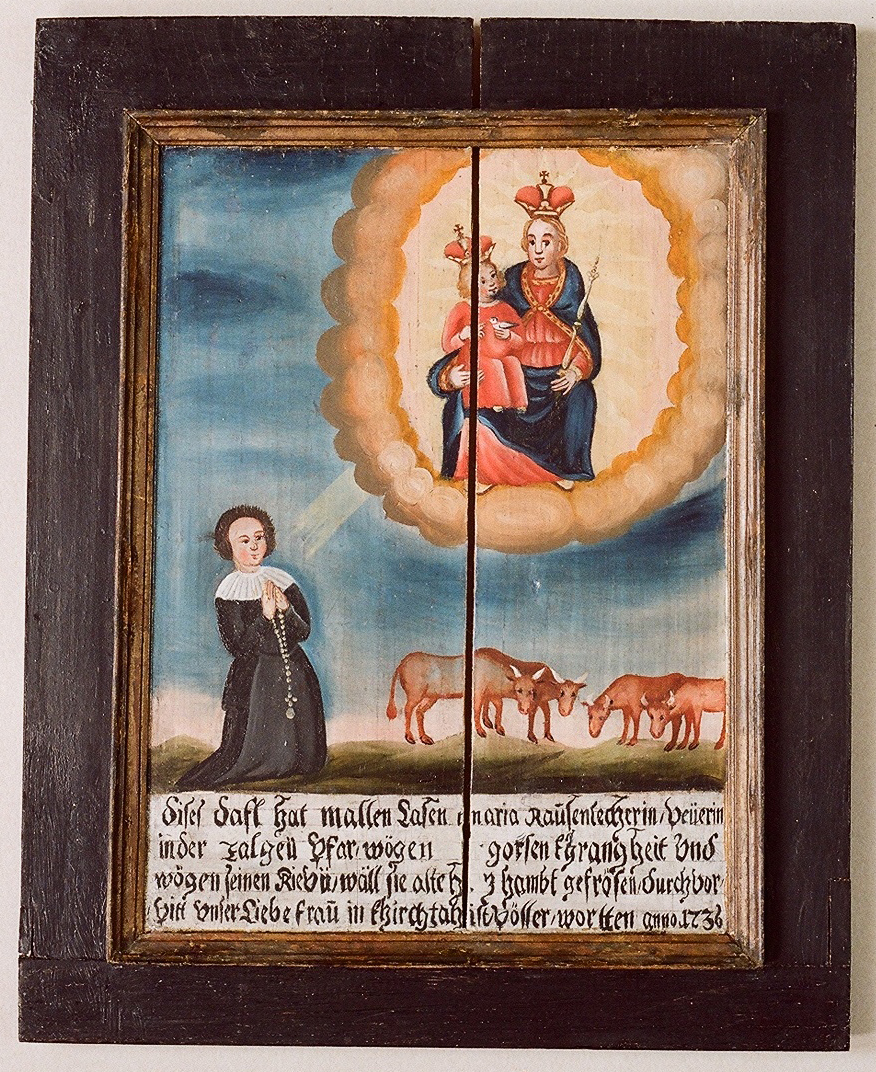 Dises dafl hat mallen Lasen maria Raüsenlecherin, Peüerin
in der Talgeü Pfar, wögen gorsen khranghheit Vnd
wögen seinen RieVü, wäll sie alte hambt gefrösen, durch Vor
Vitt Vnser Liebe fraü in khirchtah ist Pösser, wortten anno. 1736